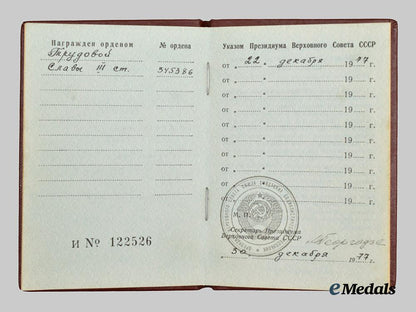 Награжден орденом № ордена
Трудовой
Славы III ст. 345386
И № 122526
Указом Президиума Верховного Совета СССР
от „22 „ декабря 1977 г.
от „ „ 19 г.
от „ „ 19 г.
от „ „ 19 г.
от „ „ 19 г.
от „ „ 19 г.
от „ „ 19 г.
от „ „ 19 г.
от „ „ 19 г.
М. П.
Секретарь Президиума
Верховного Совета СССР
„30„ декабря 1977 г.
eMedals